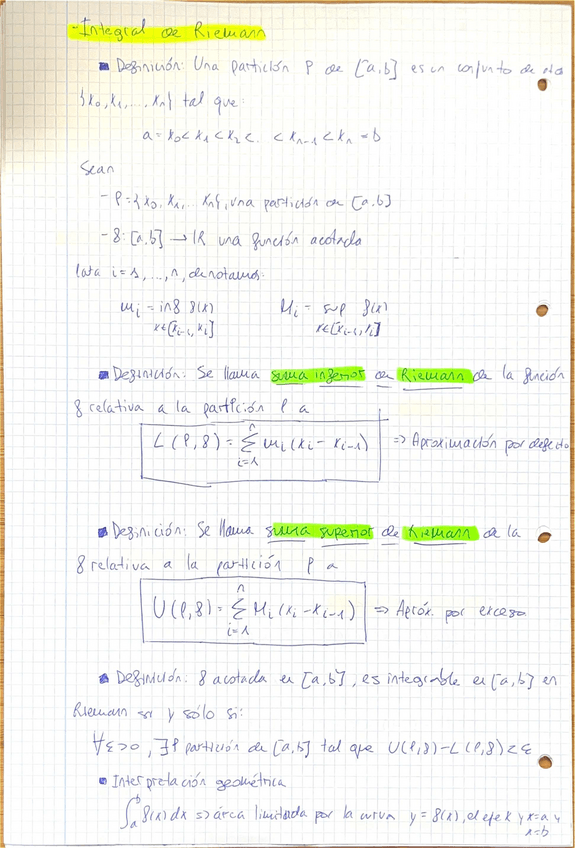 - Integral de Riemann
▪ Definición: Una partición P de [a,b] es un conjunto de
{x₀, x₁, ..., xₙ} tal que:
a = x₀ < x₁ < x₂ < .. < xₙ₋₁ < xₙ = b
Sean
- P = {x₀, x₁, ... xₙ}, una partición de [a,b]
- f: [a,b] → ℝ una función acotada
Para i = 1, ..., n, denotamos:
mᵢ = inf f(x) Mᵢ = sup f(x)
x∈[xᵢ₋₁, xᵢ] x∈[xᵢ₋₁, xᵢ]
▪ Definición: Se llama suma inferior de Riemann de la función
f relativa a la partición P a
L(P,f) = ∑ᵢ₌₁ⁿ mᵢ (xᵢ - xᵢ₋₁) => Aproximación por defecto
▪ Definición: Se llama suma superior de Riemann de la
f relativa a la partición P a
U(P,f) = ∑ᵢ₌₁ⁿ Mᵢ (xᵢ - xᵢ₋₁) => Apróx. por exceso
▪ Definición: f acotada en [a,b], es integrable en [a,b] en
Riemann si y sólo si:
∀ε>0, ∃P partición de [a,b] tal que U(P,f) - L(P,f) < ε
▪ Interpretación geométrica
∫ₐᵇ f(x) dx => área limitada por la curva y = f(x), el eje x y x=a y
x=b